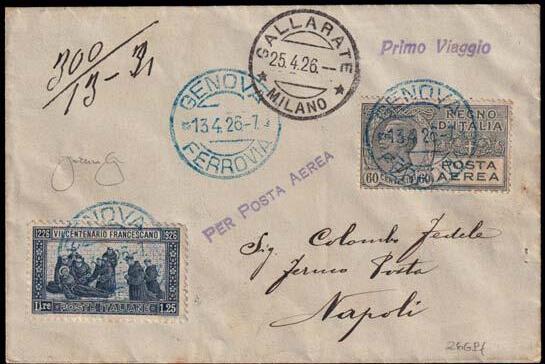 300
13-31
GALLARATE
25.4.26.-
MILANO
Primo Viaggio
GENOVA
13.4.26-7
FERROVIA
GENOVA
13.4.26-7
REGNO
D'ITALIA
POSTA
AEREA
60 60
PER POSTA AEREA
GENOVA
1226 VII CENTENARIO FRANCESCANO 1926
lire 1.25
POSTE ITALIANE
Sig. Colombo Fedele
Fermo Posta
Napoli